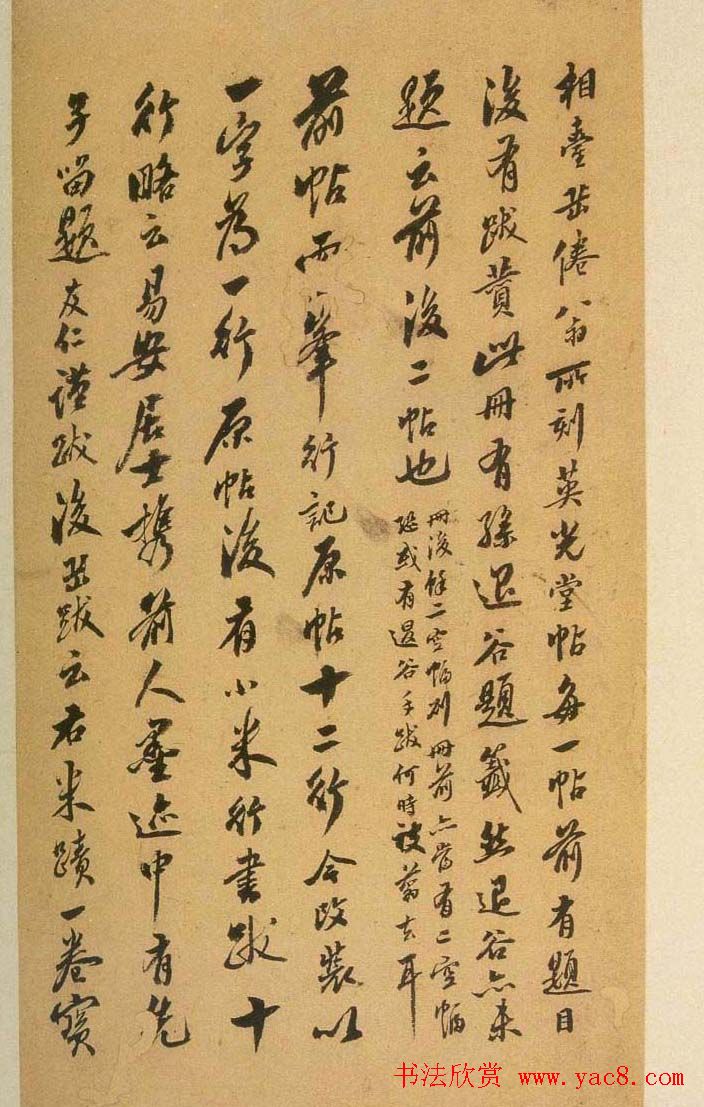 相臺岳倦翁所刻英光堂帖每一帖前有題目
後有跋贊此冊有孫退谷題籤然退谷亦未
題云前後二帖也
冊後餘二空幅則冊前亦當有二空幅
恐或有退谷手跋何時被翦去耳
前帖峯行記原帖十二行今改裝以
一字為一行原帖後有小米行書跋十
行略云易安居士攜前人墨迹中有先
子留題友仁謹跋後岳跋云右米蹟一卷寶
书法欣赏 www.yac8.com